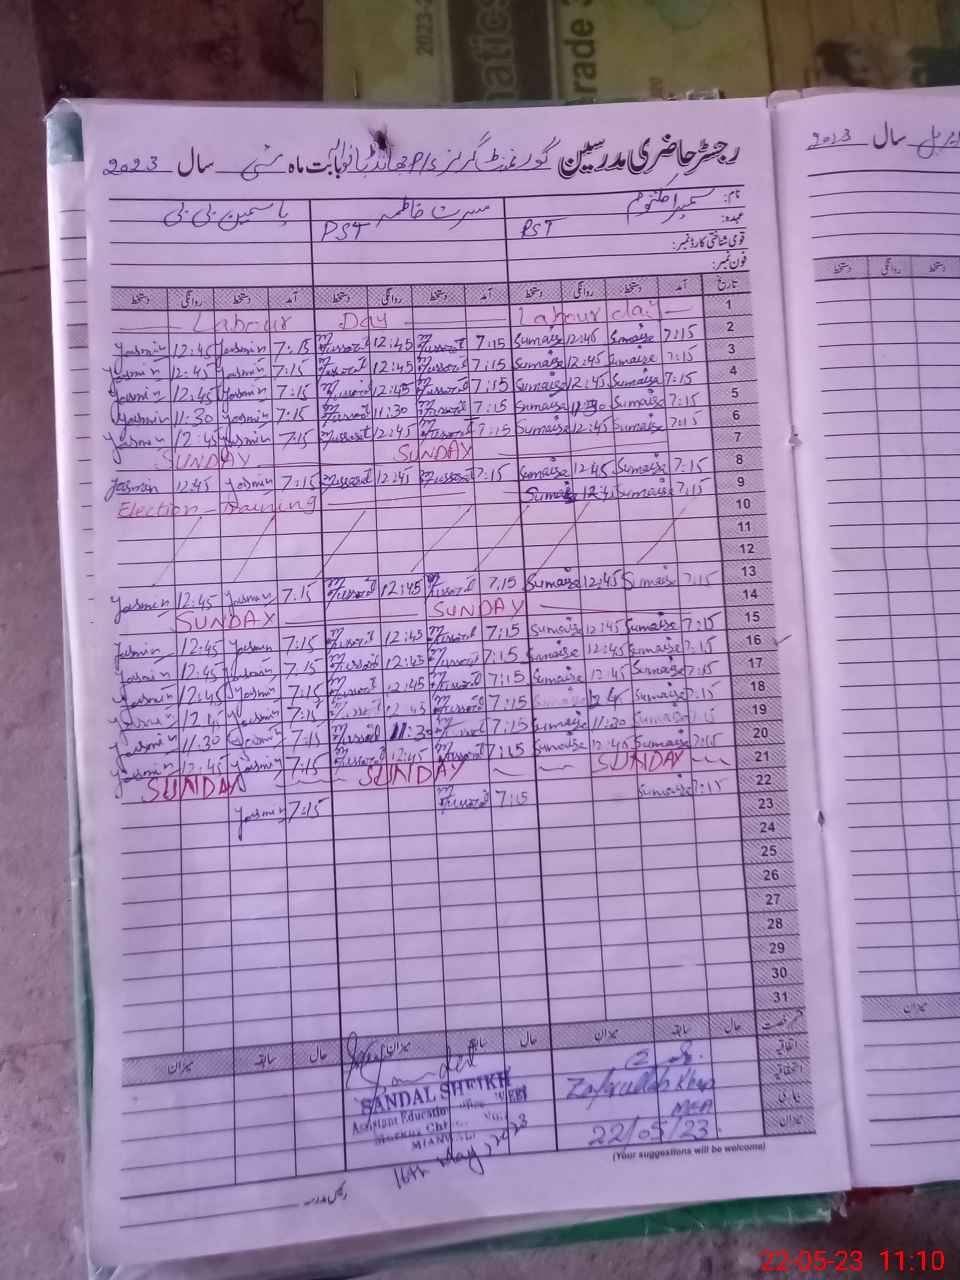 2023-2
matics
rade 3
رجسٹر حاضری مدرسین گورنمنٹ گرلز P/s بابت ماہ مئی سال 2023
سال 2023
نام: مسرت فاطمہ یاسمین بی بی
عہدہ: PST PST
قومی شناختی کارڈ نمبر:
فون نمبر:
تاریخ آمد دستخط روانگی دستخط آمد دستخط روانگی دستخط آمد دستخط روانگی دستخط
دستخط روانگی دستخط
1 Labour Day Labour day
2 7:15 Sumaise 12:45 Sumaise 7:15 Mussarat 12:45 Mussarat 7:15 Yasmin 12:45 Yasmin
3 7:15 Sumaise 12:45 Sumaise 7:15 Mussarat 12:45 Mussarat 7:15 Yasmin 12:45 Yasmin
4 7:15 Sumaise 12:45 Sumaise 7:15 Mussarat 12:45 Mussarat 7:15 Yasmin 12:45 Yasmin
5 7:15 Sumaise 11:30 Sumaise 7:15 Mussarat 11:30 Mussarat 7:15 Yasmin 11:30 Yasmin
6 7:15 Sumaise 12:45 Sumaise 7:15 Mussarat 12:45 Mussarat 7:15 Yasmin 12:45 Yasmin
7 SUNDAY SUNDAY
8 7:15 Sumaise 12:45 Sumaise 7:15 Mussarat 12:45 Mussarat 7:15 Yasmin 12:45 Yasmin
9 7:15 Sumaise 12:45 Election Training
10
11
12
13 7:15 Sumaise 12:45 Sumaise 7:15 Mussarat 12:45 Mussarat 7:15 Yasmin 12:45 Yasmin
14 SUNDAY SUNDAY
15 7:15 Sumaise 12:45 Sumaise 7:15 Mussarat 12:45 Mussarat 7:15 Yasmin 12:45 Yasmin
16 7:15 Sumaise 12:45 Sumaise 7:15 Mussarat 12:45 Mussarat 7:15 Yasmin 12:45 Yasmin
17 7:15 Sumaise 12:45 Sumaise 7:15 Mussarat 12:45 Mussarat 7:15 Yasmin 12:45 Yasmin
18 7:15 Sumaise 7:15 Mussarat 12:45 Mussarat 7:15 Yasmin Yasmin
19 7:15 Sumaise 11:30 Sumaise 7:15 Mussarat 11:30 Mussarat 7:15 Yasmin 11:30 Yasmin
20 7:15 Sumaise 12:45 Sumaise 7:15 Mussarat 12:45 Mussarat 7:15 Yasmin 12:45 Yasmin
21 SUNDAY SUNDAY SUNDAY
22 7:15 Sumaise 7:15 Mussarat 7:15 Yasmin
23
24
25
26
27
28
29
30
31
حال سابقہ میزان حال سابقہ میزان حال سابقہ میزان
میزان
میزان
Zafarullah Khan
MEA
22/05/23
SANDAL SHEIKH
Assistant Education
Markaz
MIANWALI
16th May, 2023
(Your suggestions will be welcome)
رئیس مدرسہ
22-05-23 11:10